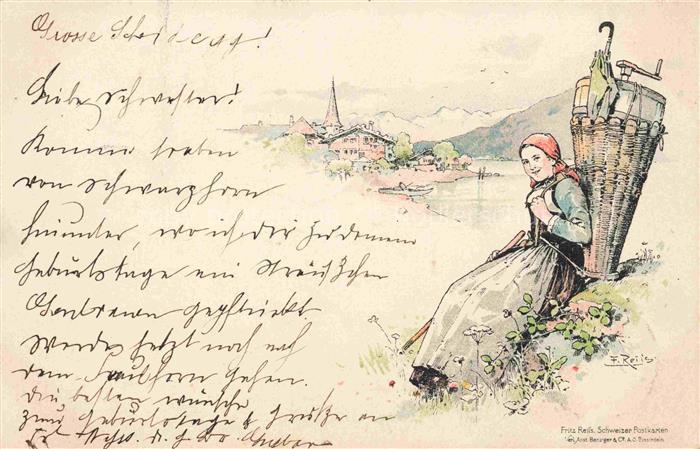 Grosse Scheidegg!
Liebe Schwester!
Komme soeben
von Schwarzhorn
herunter, wo ich dir zu deinem
Geburtstage ein Sträußchen
gepflückt
Werde jetzt noch
dem Faulhorn gehen.
Die besten Wünsche
zum Geburtstage & Grüße an
F. Reiss
Fritz Reiss. Schweizer Postkarten
Verl. Anst. Benziger & Co. A.G. Einsiedeln